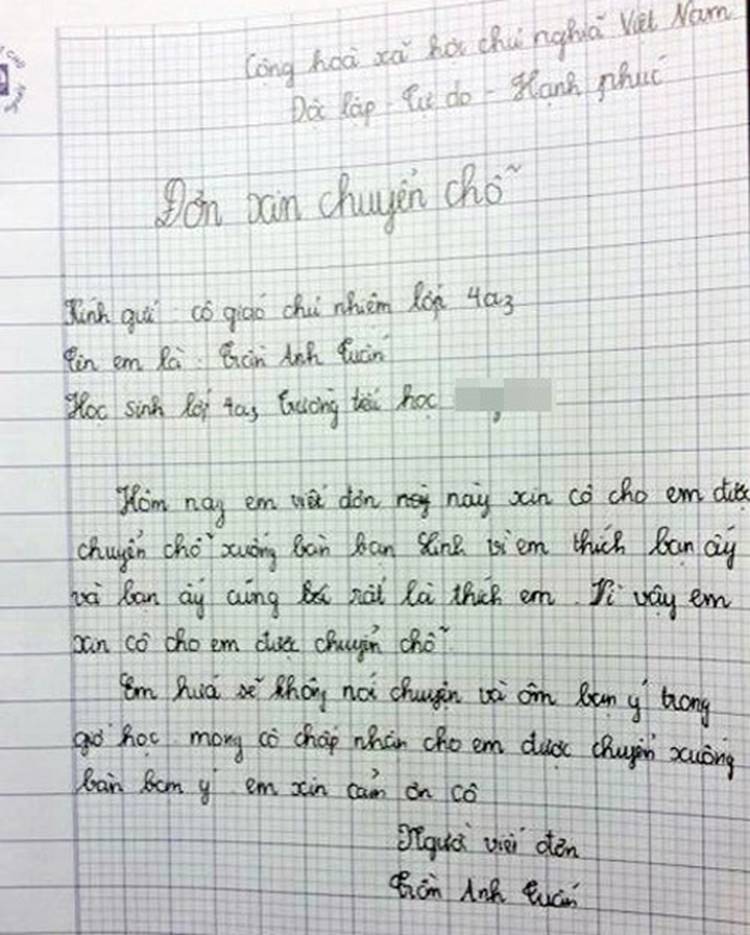 Cộng hoà xã hội chủ nghĩa Việt Nam
Độc lập - Tự do - Hạnh phúc
Đơn xin chuyển chỗ
Kính gửi cô giáo chủ nhiệm lớp 4a3
Tên em là : Trần Anh Tuấn
Học sinh lớp 4a3 Trường tiểu học
Hôm nay em viết đơn này xin cô cho em được
chuyển chỗ xuống bàn bạn Linh vì em thích bạn ấy
và bạn ấy cũng rất là thích em . Vì vậy em
xin cô cho em được chuyển chỗ
Em hứa sẽ không nói chuyện và ôm bạn ý trong
giờ học mong cô chấp nhận cho em được chuyển xuống
bàn bạn ý em xin cảm ơn cô
Người viết đơn
Trần Anh Tuấn